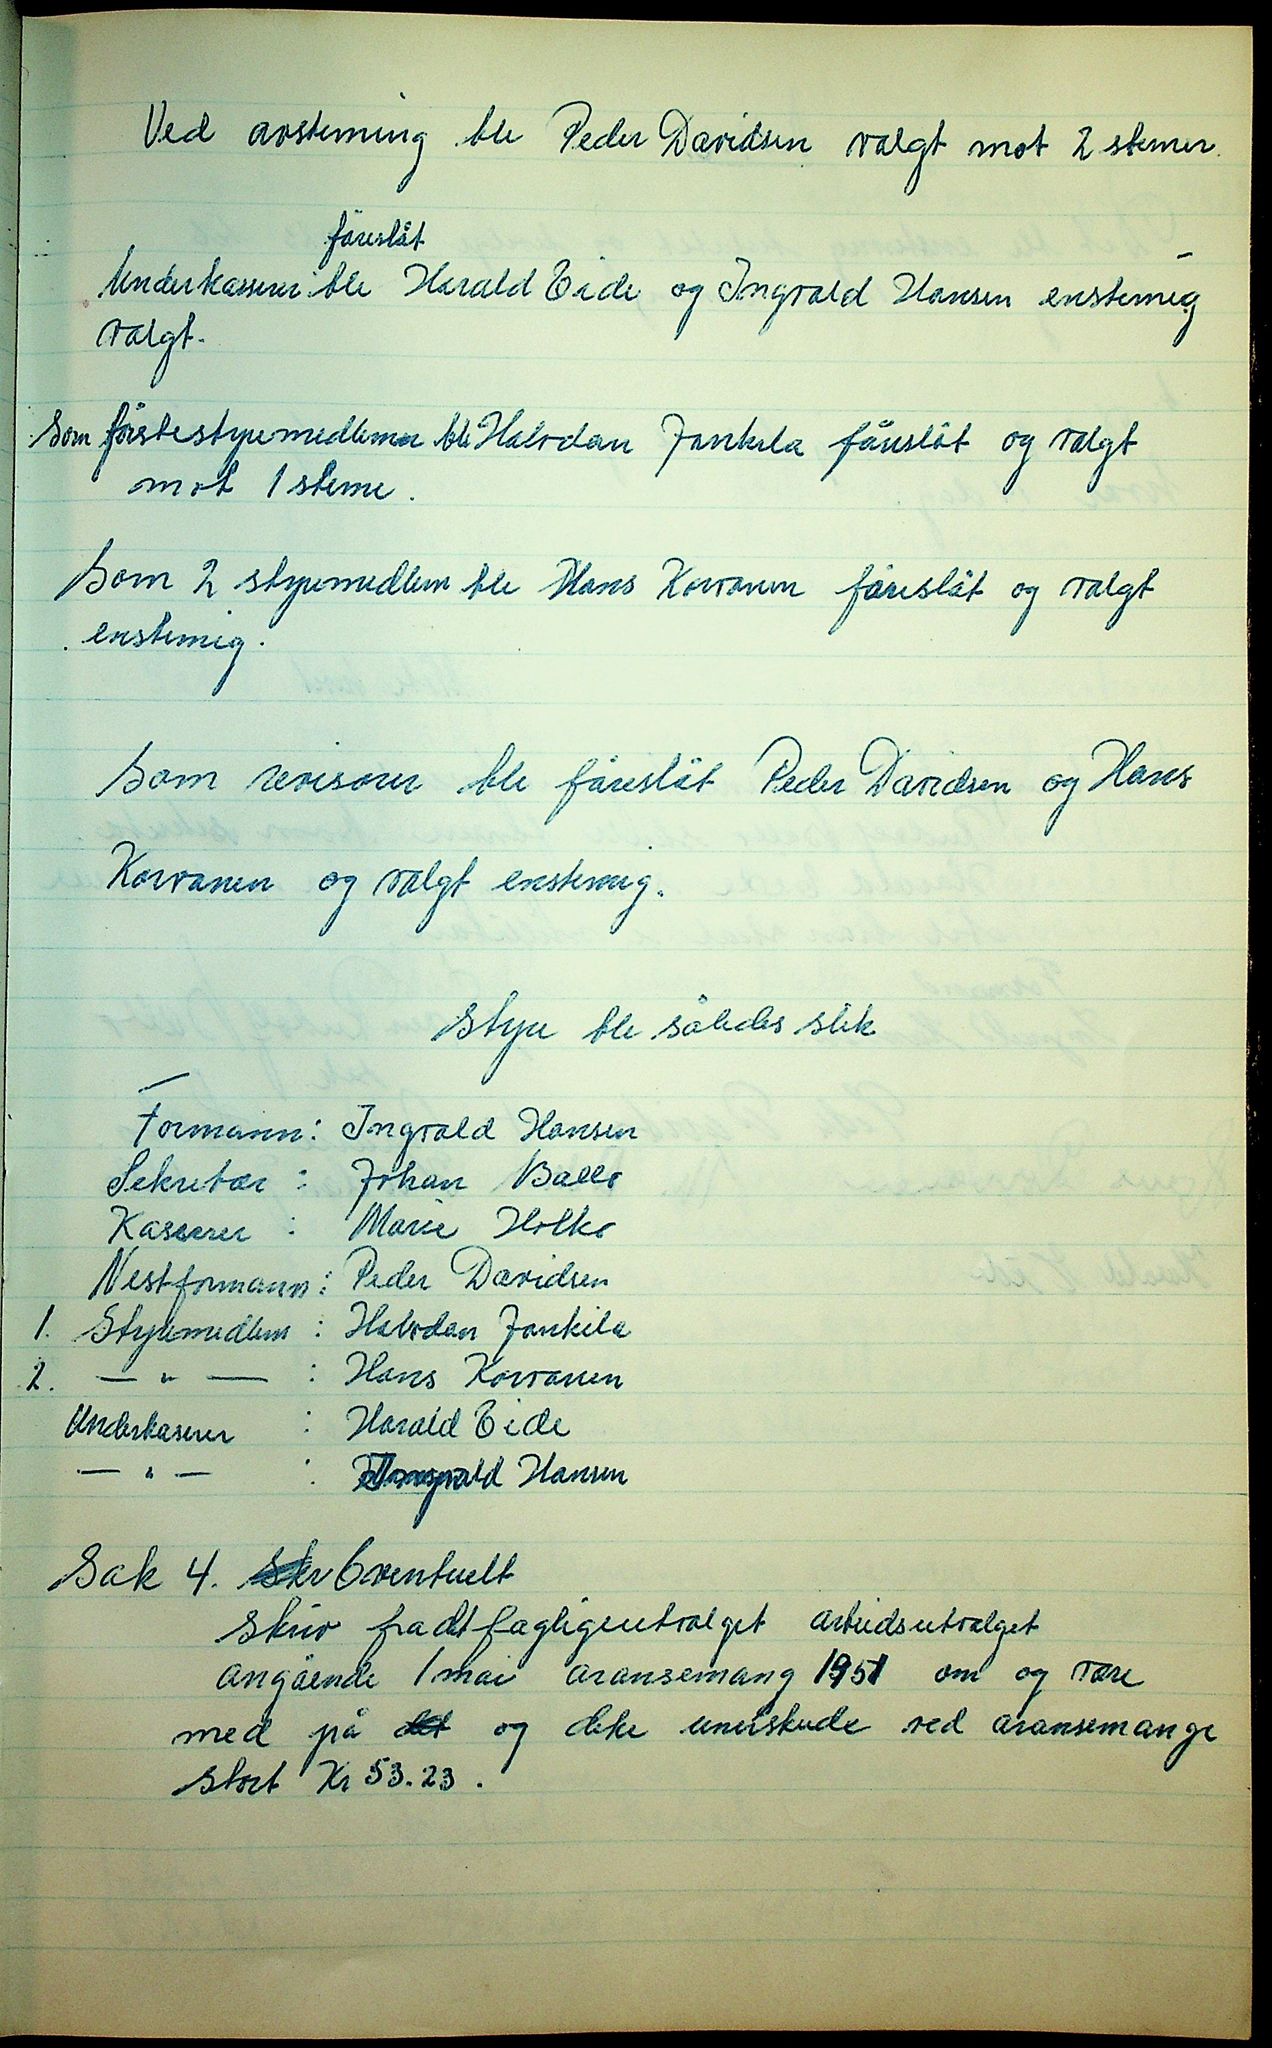 Ved avsteming ble Peder Davidsen valgt mot 2 stemer.
föreslåt
Underkasserer ble Harald Eide, og Ingvald Hansen enstemig
valgt.
Som förstestyremedlem ble Halvdan Jankila föreslåt og valgt
mot 1 steme.
Som 2 styremedlem ble Hans Korvanen föreslåt og valgt
enstemig.
Som revisorer ble föreslåt Peder Davidsen og Hans
Korvanen og valgt enstemig.
Styre ble således slik
Formann: Ingvald Hansen
Sekretær : Johan Ballo
Kasserer : Marie Holko
Nestformann: Peder Davidsen
1. Styremedlem : Halvdan Jankila
2. — " — : Hans Korvanen
Underkaserer : Harald Eide
— " — : Ingvald Hansen
Sak 4. Eventuelt
Skriv fra det fagligeutvalget arbeidsutvalget
angående 1 mai aransemang 1951 om og være
med på og deke unerskude ved aransemange
stort Kr 53.23.